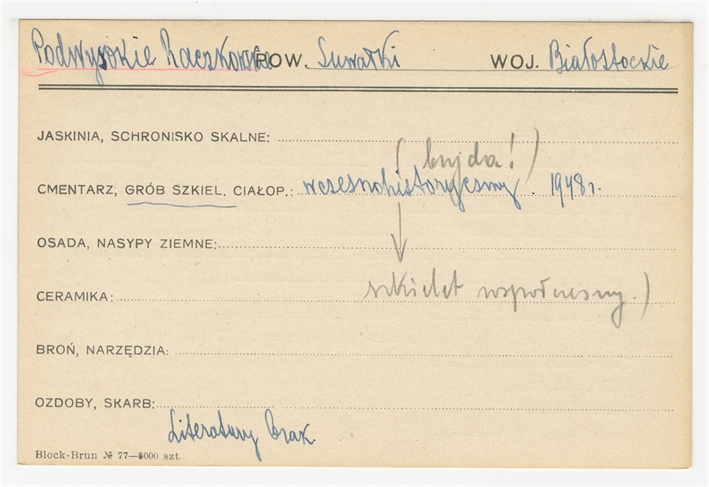 Podwysokie Raczkowskie POW. Suwałki WOJ. Białostockie
JASKINIA, SCHRONISKO SKALNE:
(bujda!)
CMENTARZ, GRÓB SZKIEL. CIAŁOP.: wczesnohistoryczny. 1948 r.
OSADA, NASYPY ZIEMNE:
CERAMIKA: szkielet współczesny.)
BROŃ, NARZĘDZIA:
OZDOBY, SKARB:
Literatury brak.
Block-Brun № 77—8000 szt.